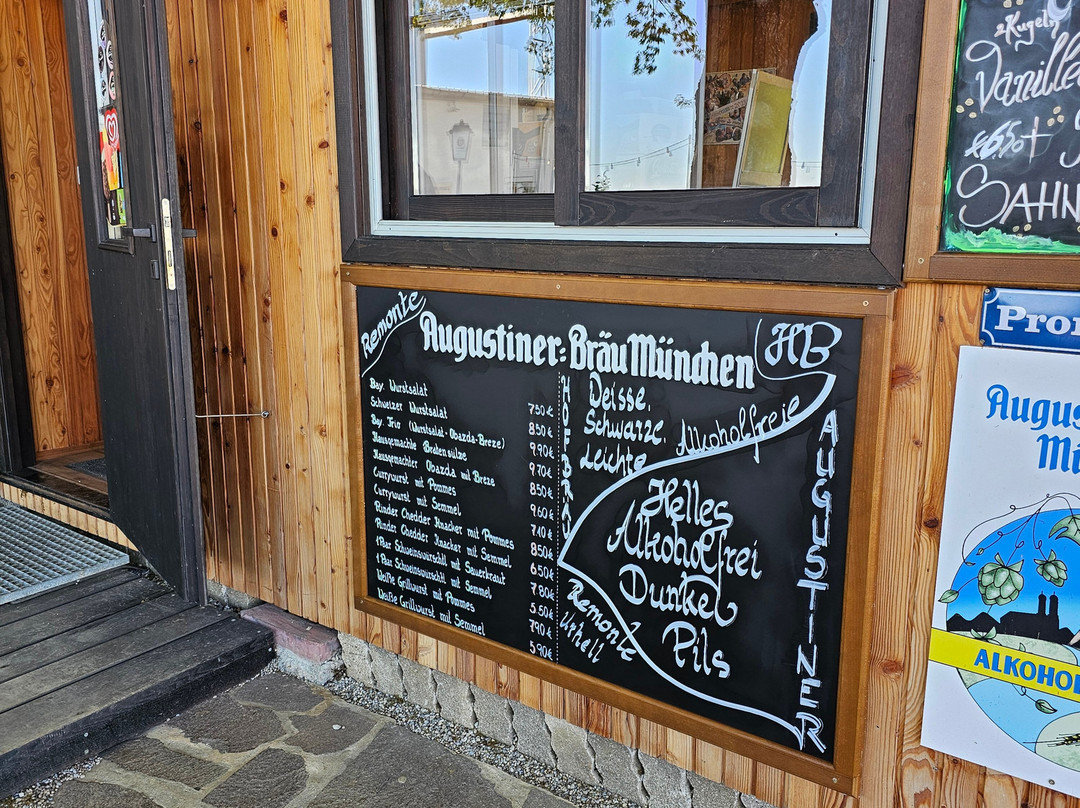 Remonte
Augustiner-Bräu München
HB
Bay. Wurstsalat 7.50€
Schweizer Wurstsalat 8.50€
Bay. Trio (Wurstsalat-Obazda-Breze) 9.90€
Hausgemachte Bratensülze 9.70€
Hausgemachter Obazda mit Breze 8.50€
Currywurst mit Pommes 9.60€
Currywurst mit Semmel 7.40€
Rinder Chedder Knacker mit Pommes 8.50€
Rinder Chedder Knacker mit Semmel 6.50€
1 Paar Schweinswürschtl mit Sauerkraut 7.80€
1 Paar Schweinswürschtl mit Semmel 5.50€
Weiße Grillwurst mit Pommes 7.90€
Weiße Grillwurst mit Semmel 5.90€
HOFBRÄU
Deisse.
Schwarze.
Leichte
Alkoholfreie
Helles
Alkoholfrei
Dunkel
Pils
AUGUSTINER
Remonte
Urhell
2 Kugeln
Vanille
SAHN
Pro
Augus
Mü
ALKOHO